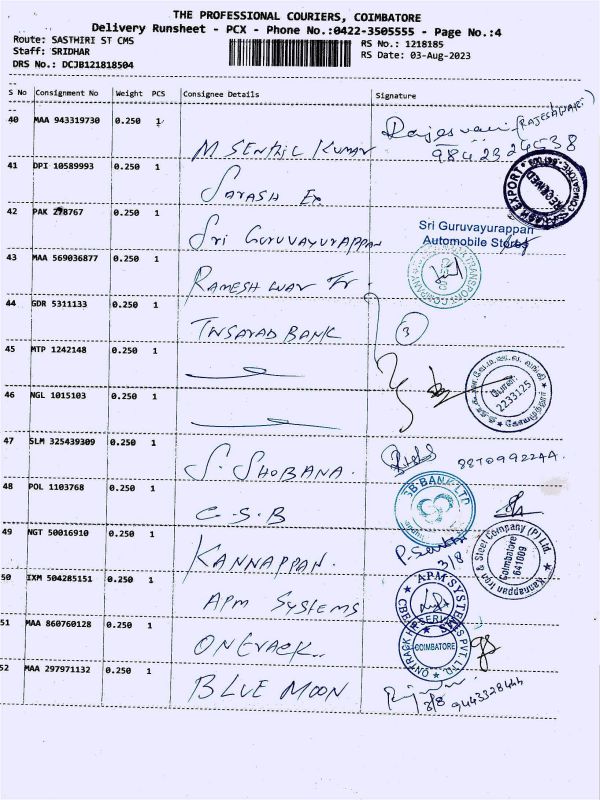 THE PROFESSIONAL COURIERS, COIMBATORE
Delivery Runsheet - PCX - Phone No.:0422-3505555 - Page No.:4
Route: SASTHIRI ST CMS
RS No.: 1218185
Staff: SRIDHAR
RS Date: 03-Aug-2023
DRS No.: DCJB121818504
S No Consignment No Weight PCS Consignee Details Signature
40 MAA 943319730 0.250 1 M SENTHIL KUMAR (RAJESHWARI)
41 DPI 10589993 0.250 1 SAYASH Ex
RECEIVED
42 PAK 278767 0.250 1 Sri GURUVAYURAPPAN
Sri Guruvayurappan
Automobile Stores
43 MAA 569036877 0.250 1 RAMESHWAR Tr.
44 GDR 5311133 0.250 1 BANK 3
45 MTP 1242148 0.250 1
2233125
46 NGL 1015103 0.250 1
47 SLM 325439309 0.250 1 S. SHOBANA.
48 POL 1103768 0.250 1 C.S.B
CSB-BANK-LTD
49 NGT 50016910 0.250 1 KANNAPPAN. 3/8
Kannappan Iron & Steel Company (P) Ltd.
Coimbatore
641009
50 IXM 504285151 0.250 1 APM SYSTEMS
APM SYSTEMS
51 MAA 860760128 0.250 1 ONTRACK..
COIMBATORE
52 MAA 297971132 0.250 1 BLUE MOON 3/8 9443328444